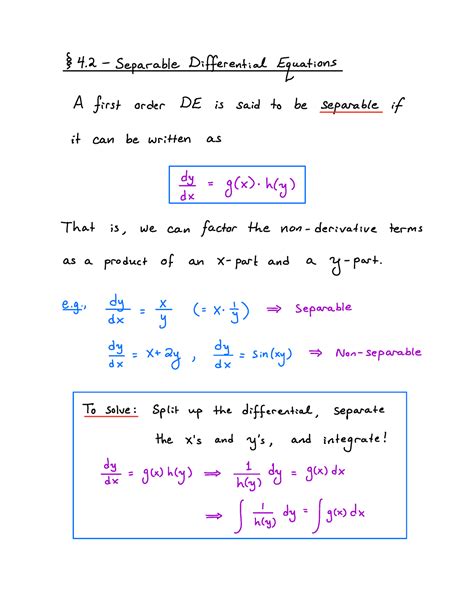 § 4.2 – Separable Differential Equations
A first order DE is said to be separable if
it can be written as
dy/dx = g(x)·h(y)
That is, we can factor the non-derivative terms
as a product of an x-part and a y-part.
e.g., dy/dx = x/y (= x·1/y) ⇒ Separable
dy/dx = x+2y , dy/dx = sin(xy) ⇒ Non-separable
To solve: Split up the differential, separate
the x's and y's, and integrate!
dy/dx = g(x)h(y) ⇒ 1/h(y) dy = g(x)dx
⇒ ∫ 1/h(y) dy = ∫g(x)dx